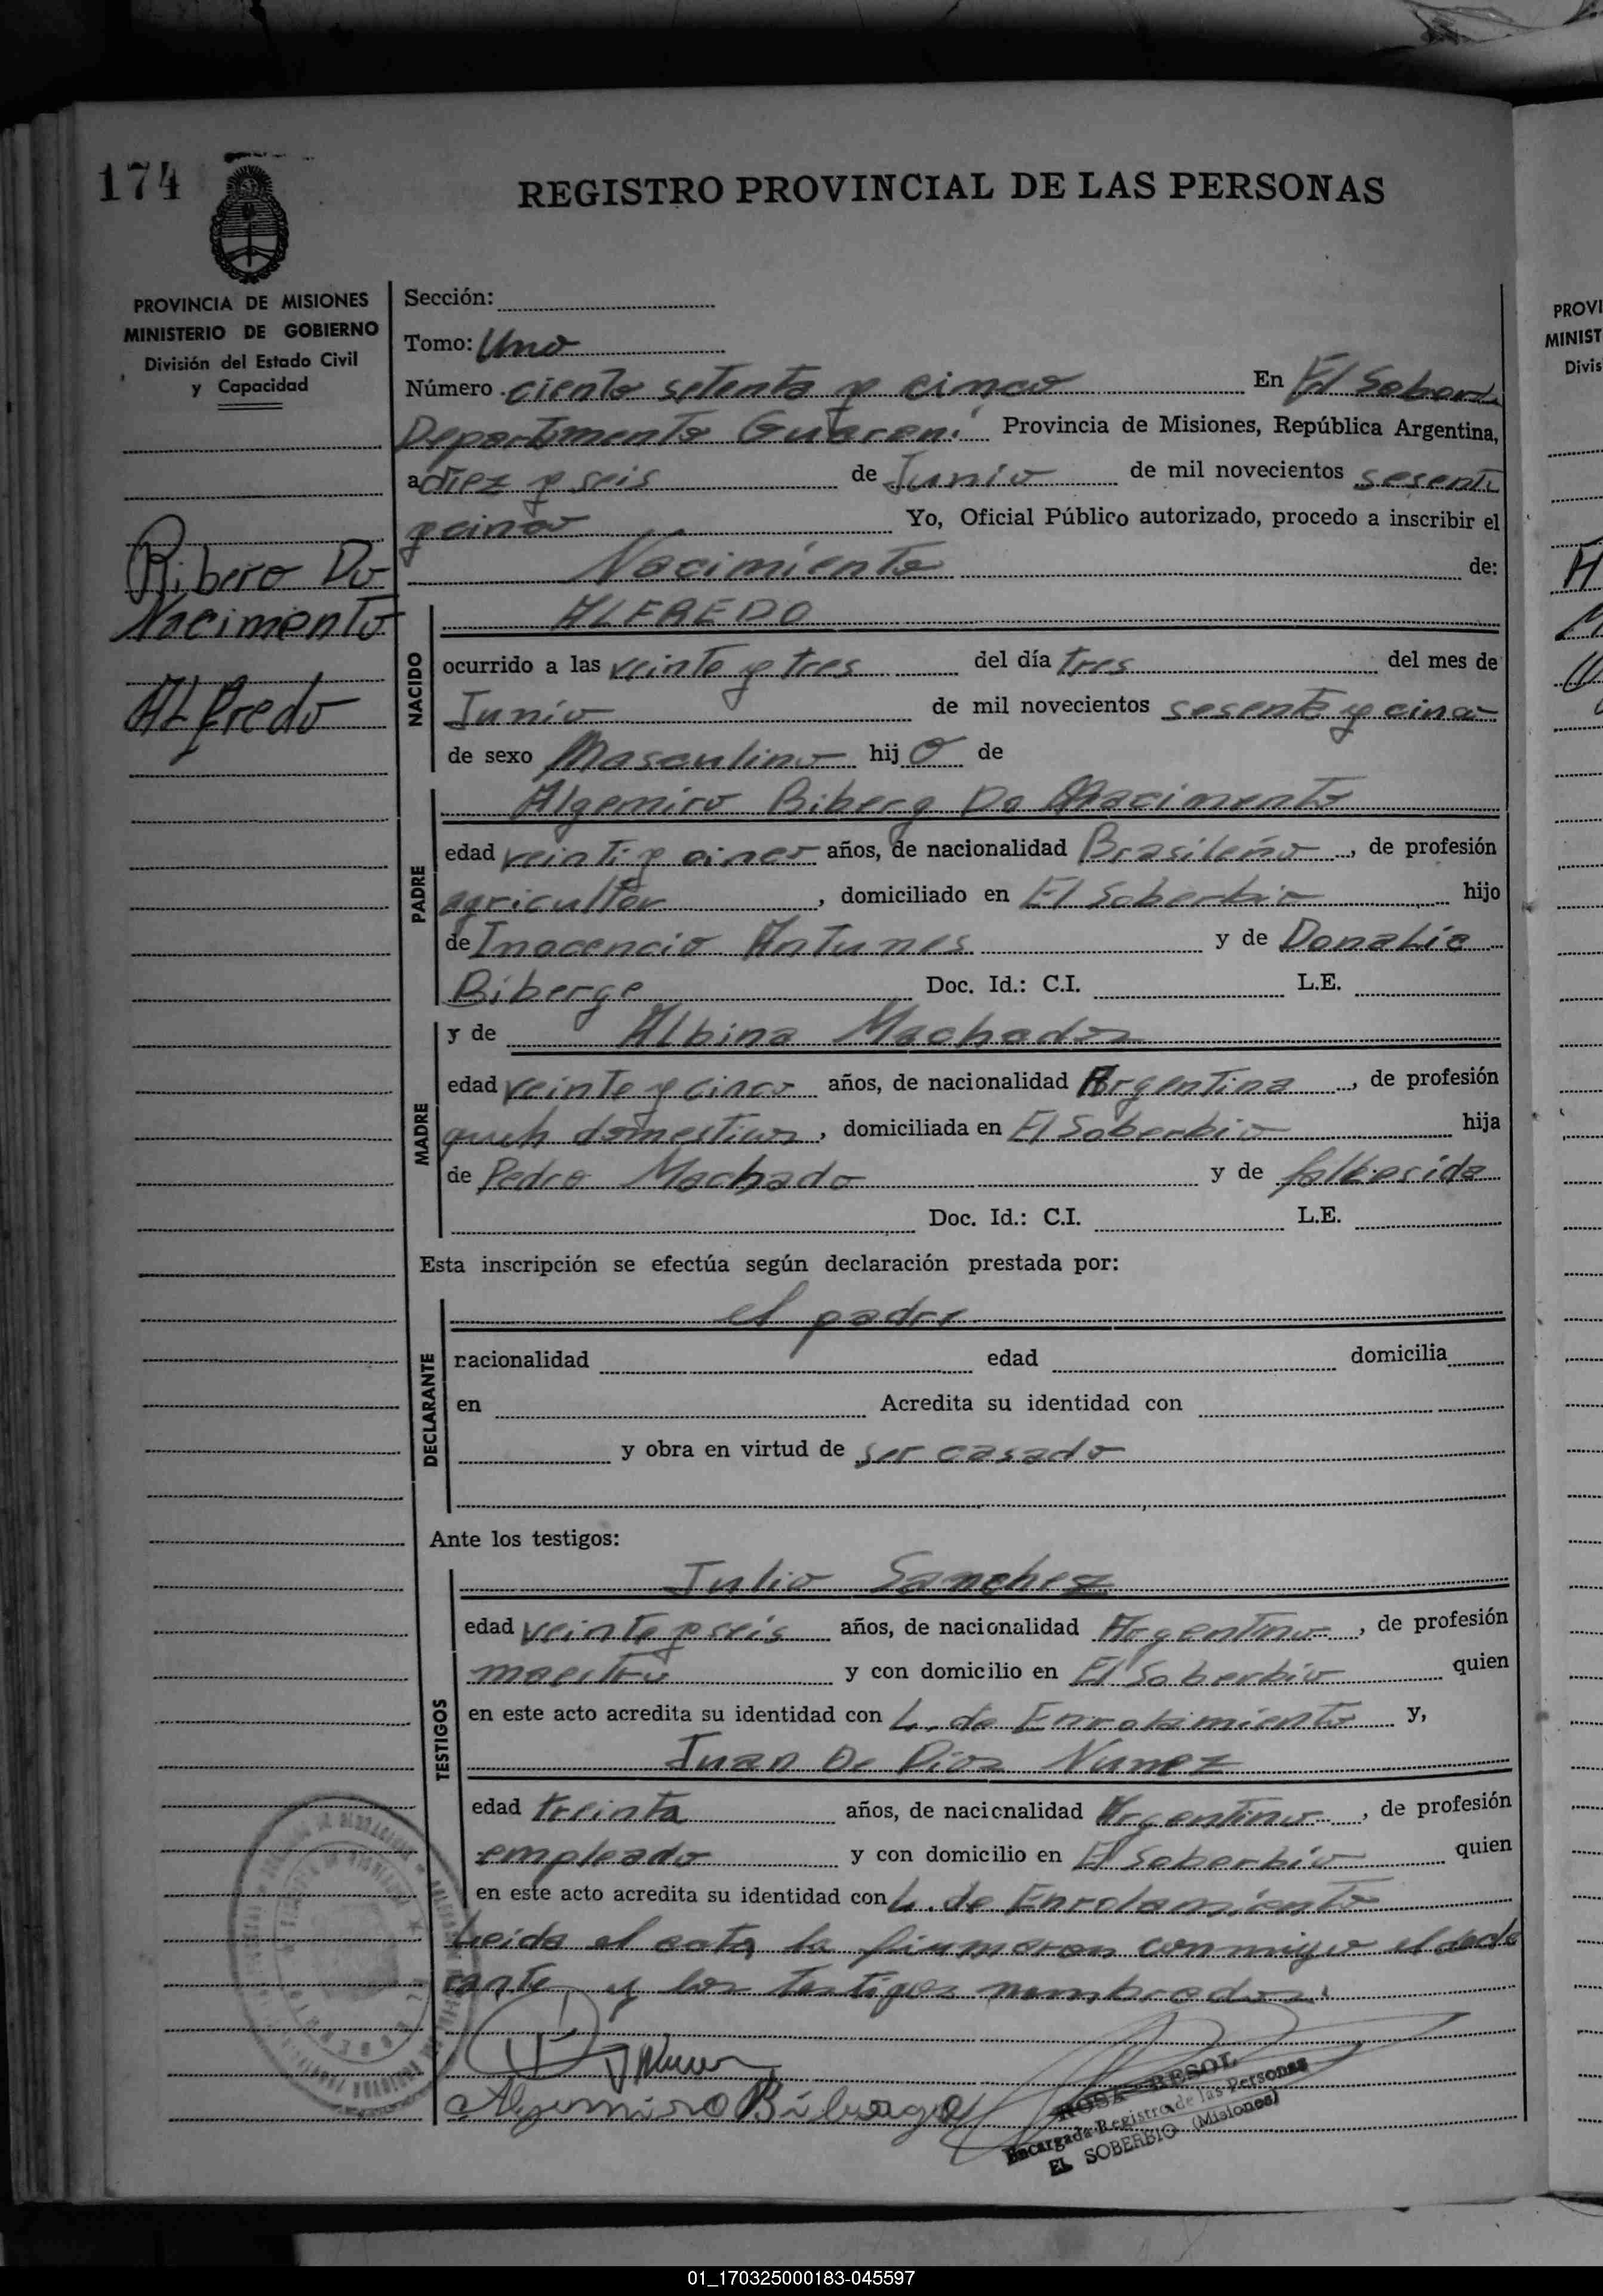 174
REGISTRO PROVINCIAL DE LAS PERSONAS
PROVINCIA DE MISIONES
MINISTERIO DE GOBIERNO
División del Estado Civil
y Capacidad
Ribero Do
Nacimento
Alfredo
Sección:
Tomo: Uno
Número ciento setenta y cinco En El Soberb
Departamento Guarani Provincia de Misiones, República Argentina,
a diez y seis de Junio de mil novecientos sesenta
y cinco Yo, Oficial Público autorizado, procedo a inscribir el
Nacimiento de:
NACIDO
ALFREDO
ocurrido a las veinte y tres del día tres del mes de
Junio de mil novecientos sesenta y cinco
de sexo Masculino hijo de
PADRE
Algemiro Biberg Do Nacimento
edad veinti y cinco años, de nacionalidad Brasileño, de profesión
agricultor, domiciliado en El Soberbio hijo
de Inocencio Antunes y de Donalia
Biberge Doc. Id.: C.I. L.E.
MADRE
y de Albina Machado
edad veinte y cinco años, de nacionalidad Argentina, de profesión
domiciliada en El Soberbio hija
de Pedro Machado y de
Doc. Id.: C.I. L.E.
Esta inscripción se efectúa según declaración prestada por:
DECLARANTE
el padre
nacionalidad edad domicilia
en Acredita su identidad con
y obra en virtud de ser casado
Ante los testigos:
TESTIGOS
Julio Sanchez
edad veinte y seis años, de nacionalidad Argentino, de profesión
maestro y con domicilio en El Soberbio quien
en este acto acredita su identidad con L. de Enrolamiento y,
Juan De Dios Nunez
edad treinta años, de nacionalidad Argentino, de profesión
empleado y con domicilio en El Soberbio quien
en este acto acredita su identidad con L. de Enrolamiento
Leida el acta la firmaron conmigo el decla
rante y los testigos nombrados.
Algemiro
ROSA RESOL
Encargada Registro de las Personas
EL SOBERBIO (Misiones)
PROVI
MINIST
Divis
01_170325000183-045597